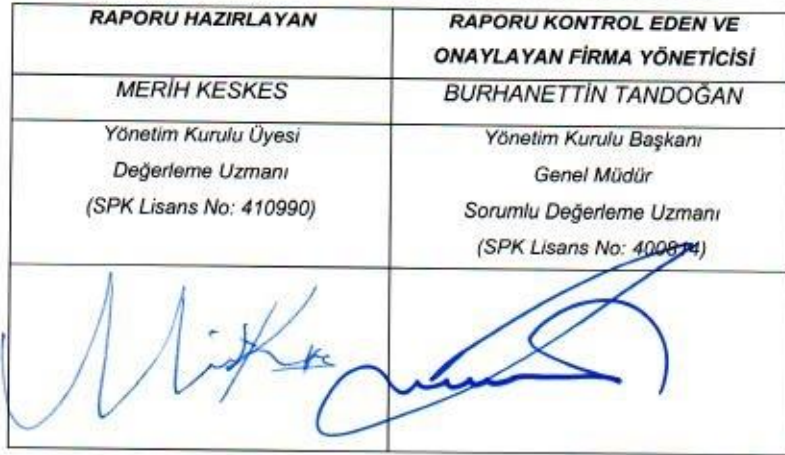 RAPORU HAZIRLAYAN
RAPORU KONTROL EDEN VE
ONAYLAYAN FİRMA YÖNETİCİSİ
MERİH KESKES
BURHANETTİN TANDOĞAN
Yönetim Kurulu Üyesi
Değerleme Uzmanı
(SPK Lisans No: 410990)
Yönetim Kurulu Başkanı
Genel Müdür
Sorumlu Değerleme Uzmanı
(SPK Lisans No: 400814)